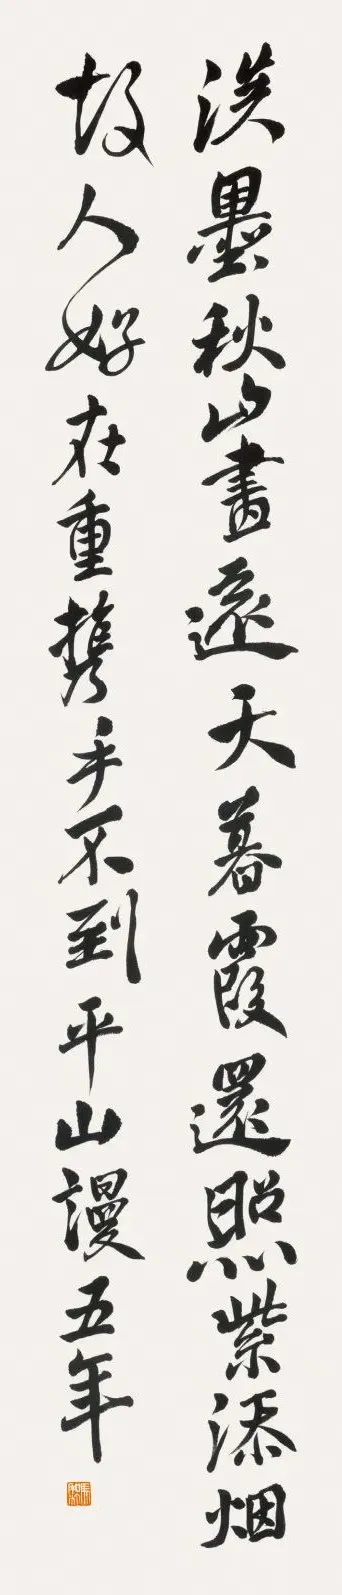 淡墨秋山畫遠天暮霞還照紫添烟
故人好在重攜手不到平山謾五年